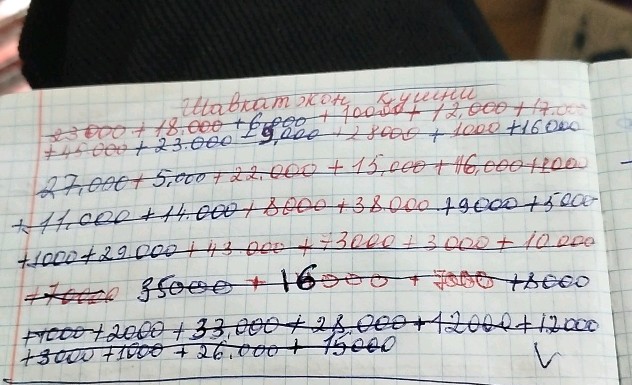 Шавкатжон кушни
23000 + 18.000 + 6.000 + 10000 + 12,000 + 17.000
+45000 + 23.000 - 9,000 + 28000 + 1000 + 16000
27,000 + 5,000 + 22.000 + 15,000 + 16,000 + 1200
+ 11.000 + 14.000 + 8000 + 38.000 + 9000 + 5000
+1000 + 29000 + 43.000 + 73000 + 3000 + 10000
+70000 35000 + 16000 + 7000 + 8000
+1000 + 2000 + 33,000 + 28,000 + 12000 + 12000
+3000 + 1000 + 26.000 + 15000